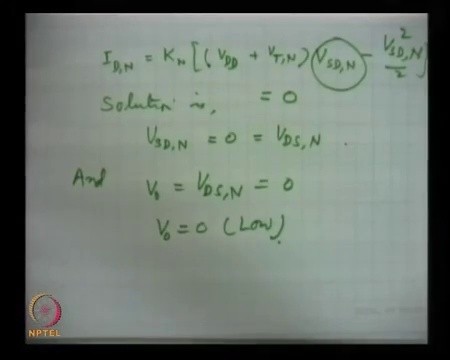 I_{D,N} = K_N [(V_{DD} + V_{T,N}) V_{SD,N} - \frac{V_{SD,N}^2}{2}]
Solution is, = 0
V_{SD,N} = 0 = V_{DS,N}
And V_0 = V_{DS,N} = 0
V_0 = 0 (Low).
NPTEL